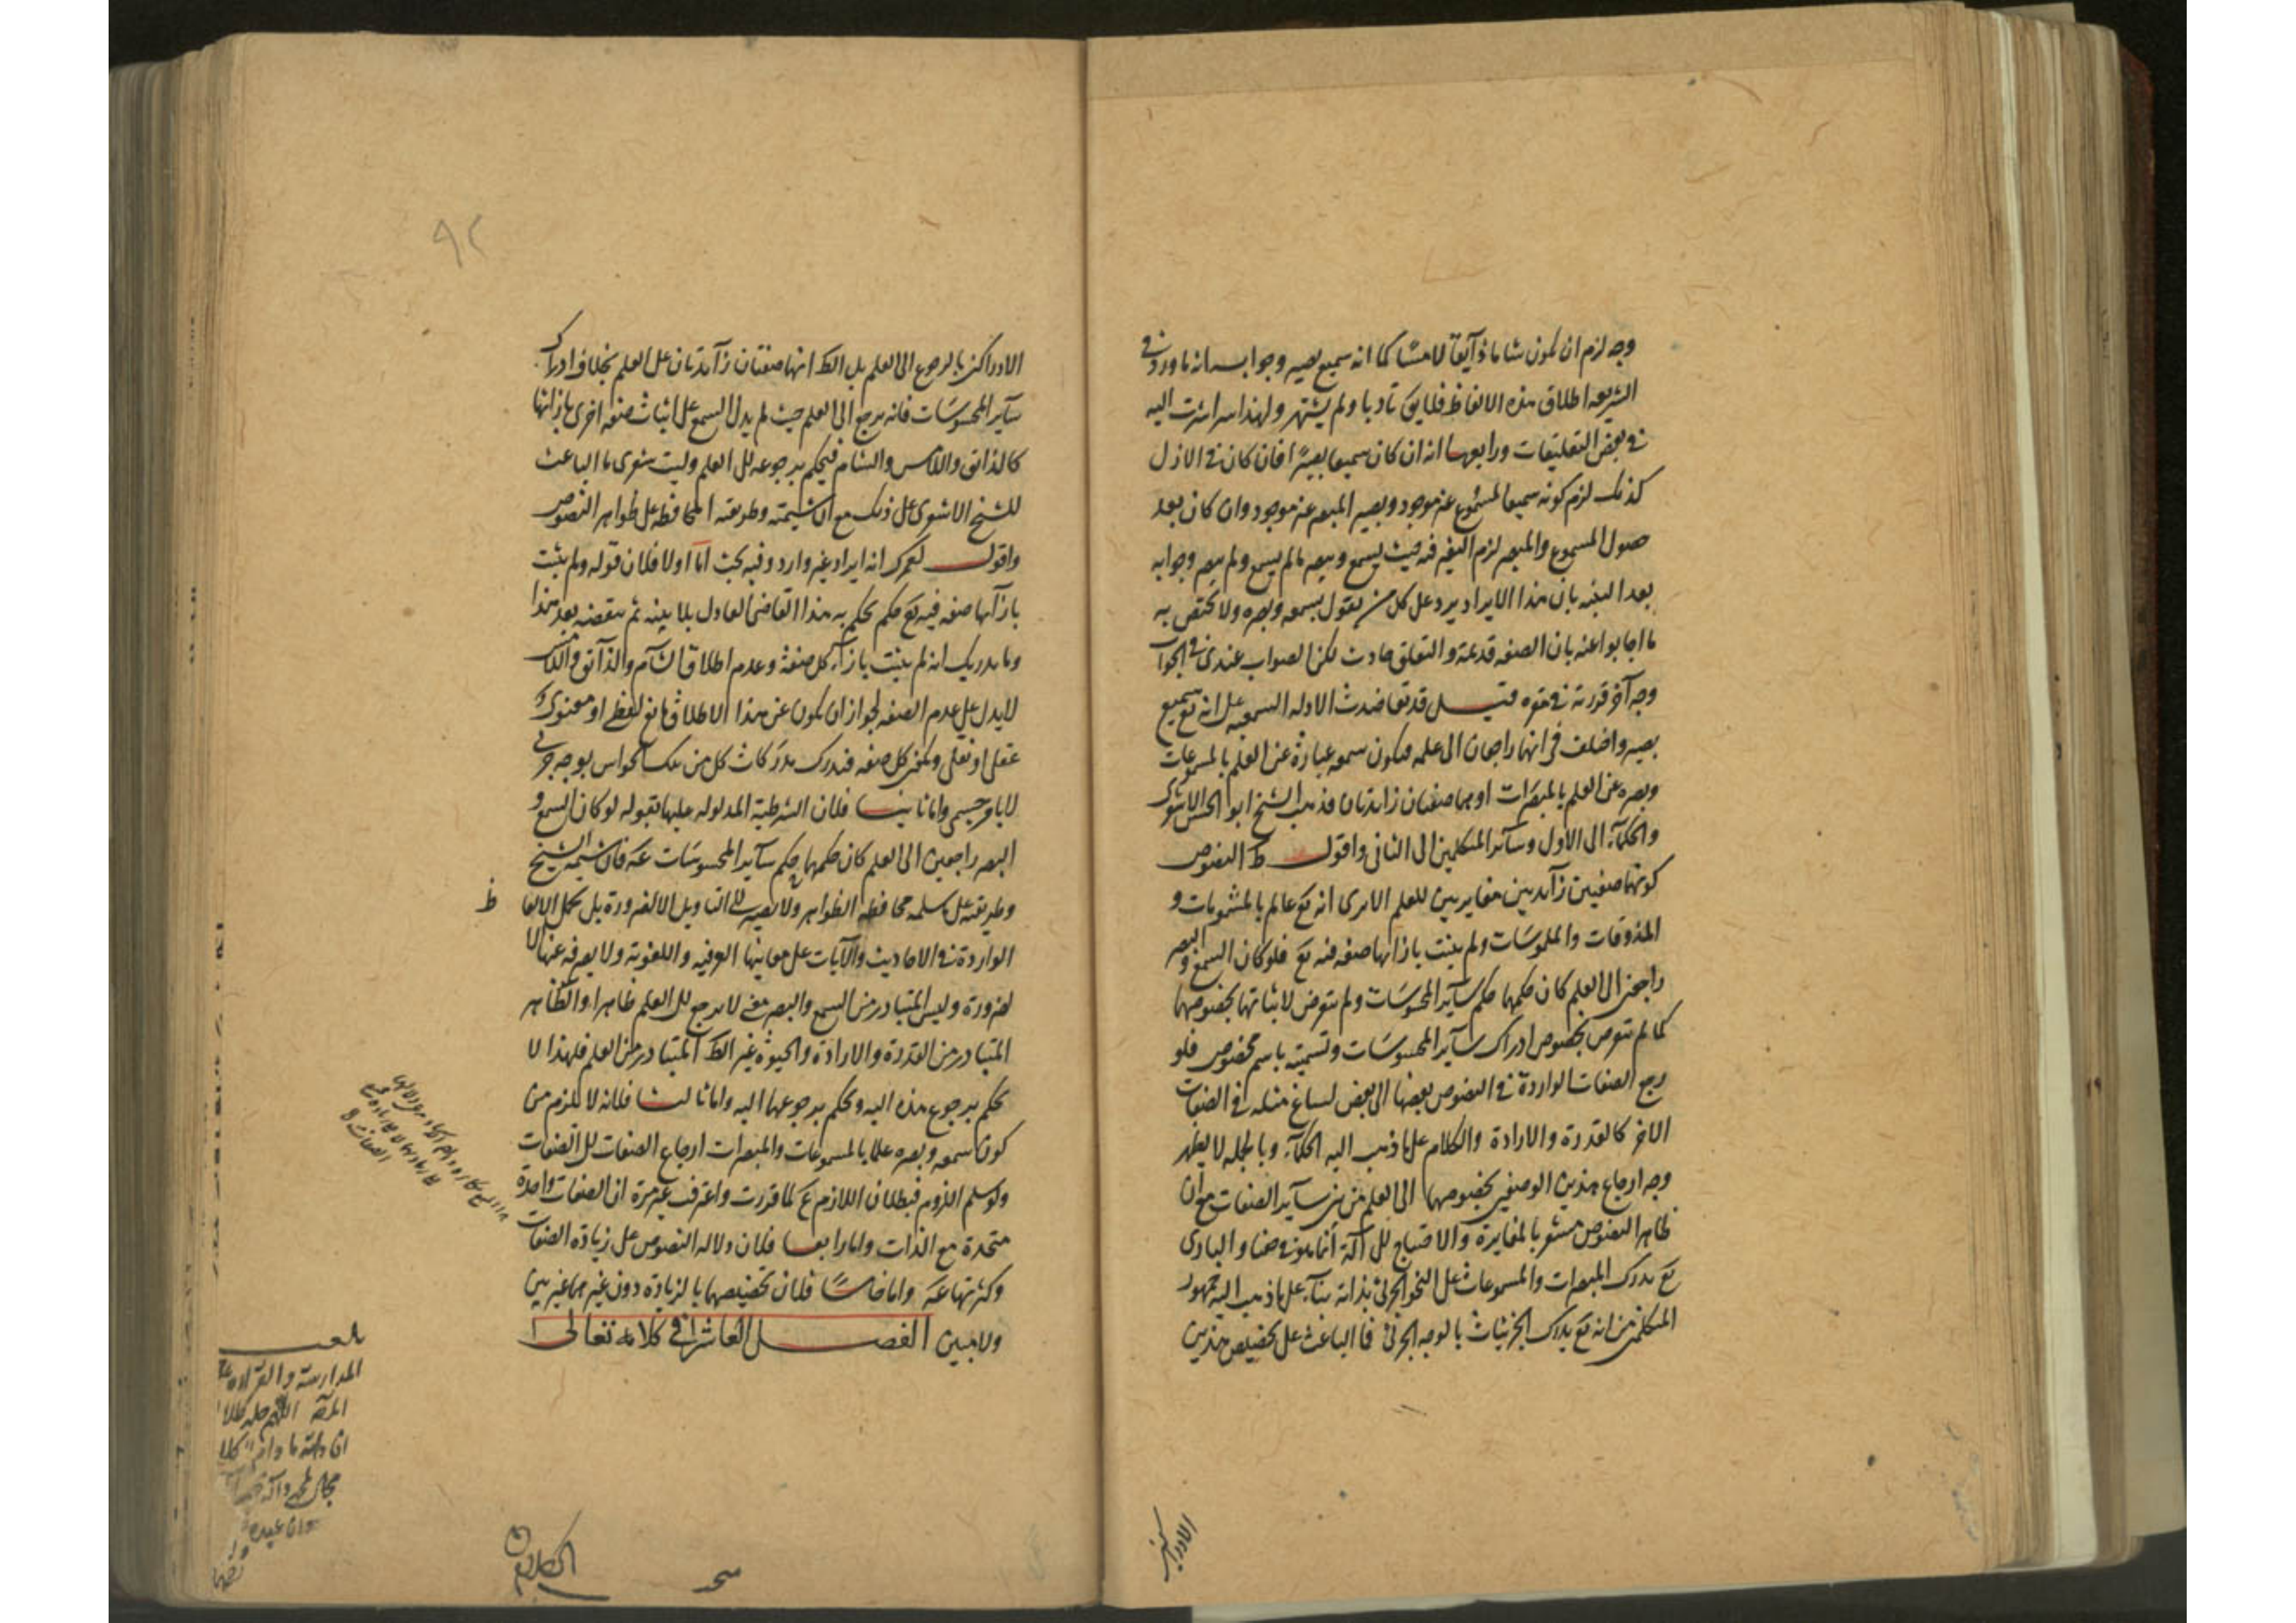 وجه لزم ان يكون شاما ذآيقا لامسًا كما انه سميع بصير وجوابه انه ما ورد في
الشريعة اطلاق هذه الالفاظ فلا يق تأدبا ولم يشتهر ولهذا سر اشرت اليه
في بعض التعليقات ورابعها انه ان كان سميعا بصيرًا فان كان في الازل
كذلك لزم كونه سميعا لمسموع غير موجود وبصير المبصر غير موجود وان كان بعد
حصول المسموع والمبصر لزم التغير فيه حيث يسمع ويبصر ما لم يسمع ولم يبصر وجوابه
بعد التنبه بان هذا الايراد يرد على كل من يقول بسمعه وبصره ولا يختص به
ما اجابوا عنه بان الصفه قديمة والتعلق حادث لكن الصواب عندى في الجواب
وجه آخر قررته في مقره قيل قد تعاضدت الادله السمعيه على انه تع سميع
بصير واختلف في انهما راجعان الى علمه فيكون سمعه عبارة عن العلم بالمسموعات
وبصره عن العلم بالمبصرات او هما صفتان زايدتان فذهب الشيخ ابو الحسن الاشعرى
والحكمآء الى الاول وسآئر المتكلمين الى الثانى واقول ظ النصوص
كونهما صفتين زآيدتين مغايرتين للعلم الا يرى انه تع عالم بالمشمومات و
المذوقات والملموسَات ولم يثبت بازائها صفه فيه تع فلو كان السمع والبصر
راجعين الى العلم كان حكمهما حكم سآير المحسوسَات ولم يتعرض لاثباتهما بخصوصهما
كما لم يتعرض بخصوص ادراك سآير المحسوسَات وتسميته باسم مخصوص فلو
رجع الصفات الواردة في النصوص بعضها الى بعض لساغ مثله في الصفات
الاخر كالقدرة والارادة والكلام على ما ذهب اليه الحكمآء وبالجمله لا يظهر
وجه ارجاع هذين الوصفين بخصوصهما الى العلم من بين سآير الصفات مع ان
ظاهر النصوص مشعر بالمغايرة والاحتياج الى آلة انما هو في حقنا والبارى
تع يدرك المبصرات والمسموعات على النحو الجزئى بذاته بنآء على ما ذهب اليه جمهور
المتكلمين من انه تع يدرك الجزئيات بالوجه الجزئى فما الباعث على تخصيص هذين
الادراكين
الادراكين بالرجوع الى العلم بل الظ انهما صفتان زآيدتان على العلم بخلاف ادراك
سآير المحسوسَات فانه يرجع الى العلم حيث لم يدل السمع على اثبات صفه اخرى بازائها
كالذائق واللامس والشام فيحكم برجوعه الى العلم وليت شعرى ما الباعث
للشيخ الاشعرى على ذلك مع ان شيمته وطريقته المحافظه على ظواهر النصوص
واقول لعمرك انه ايراد غير وارد وفيه بحث امّا اولا فلان قوله ولم يثبت
بازآئها صفه فيه تع حكم يحكم به هذا القاضى العادل بلا بينه ثم ينقضه بعد هذا
وما يدريك انه لم يثبت بازآء كل صفة وعدم اطلاق الشآم والذآئق واللامس
لا يدل على عدم الصفه لجواز ان يكون عن هذا الاطلاق مانع لفظى او معنوى و
عقلى او نقلى ولكن كل صفه فيدرك مدرَكات كل من تلك الحواس بوجه جزئى
لا بامر جسمى واما ثانيا فلان الشرطية المدلوله عليها بقوله لو كان السمع و
البصر راجعين الى العلم كان حكمهما حكم سآير المحسوسَات عـه فان شيمه الشيخ
وطريقته على ما سلمه محافظه الظواهر ولا يصير الى التاويل الا لضرورة بل يحمل الالفاظ
الواردة في الاحاديث والآيات على معانيها العرفيه واللغوية ولا يصرفه عنها الا
لضرورة وليس المتبادر من السمع والبصر معنى لا يرجع الى العلم ظاهرا والظاهر
المتبادر من القدرة والارادة والحيوة غير الظ المتبادر من العلم فلهذا لا
يحكم برجوع هذه اليه ويحكم برجوعهما اليه واما ثالثا فلانه لا يلزم من
كون سمعه وبصره علما بالمسموعات والمبصرات ارجاع الصفات الى الصفات
ولو سلم اللزوم فبطلان اللازم ع لما قررت واعترف غير مرة ان الصفات واحدة
متحدة مع الذات واما رابعا فلان دلاله النصوص على زيادة الصفات
وكثرتها عـه واما خامسًا فلان تخصيصهما بالزيادة دون غيرهما غير بين
ولا مبين الفصل العاشر في كلامه تعالى